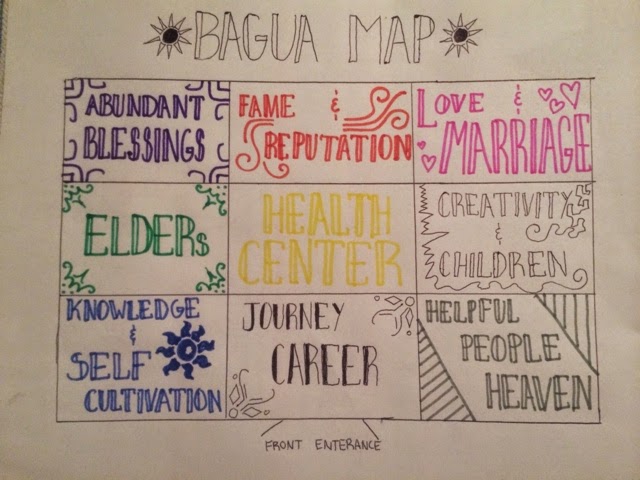 BAGUA MAP
ABUNDANT
BLESSINGS
FAME &
REPUTATION
LOVE &
MARRIAGE
ELDERS
HEALTH
CENTER
CREATIVITY
&
CHILDREN
KNOWLEDGE
&
SELF
CULTIVATION
JOURNEY
CAREER
HELPFUL
PEOPLE
HEAVEN
FRONT ENTERANCE